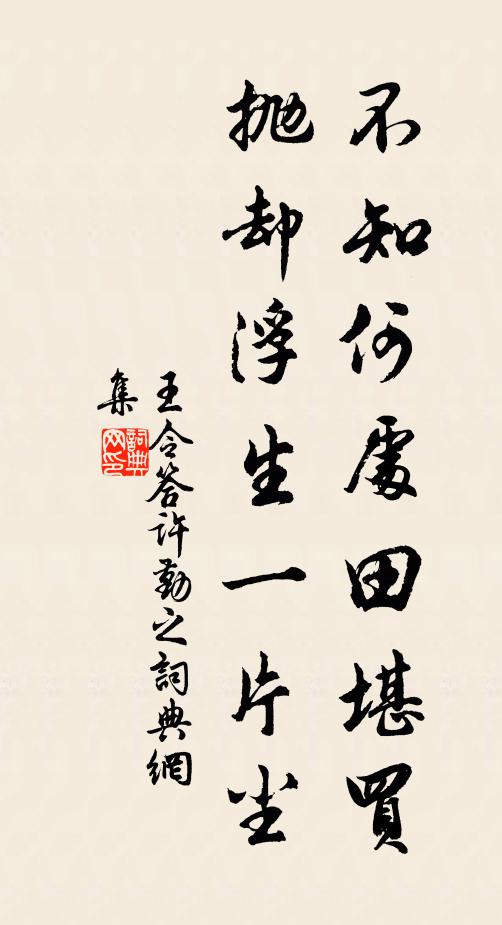 不知何處田堪買
拋却浮生一片尘
王令答許勤之詞典網
集
詞典
网印